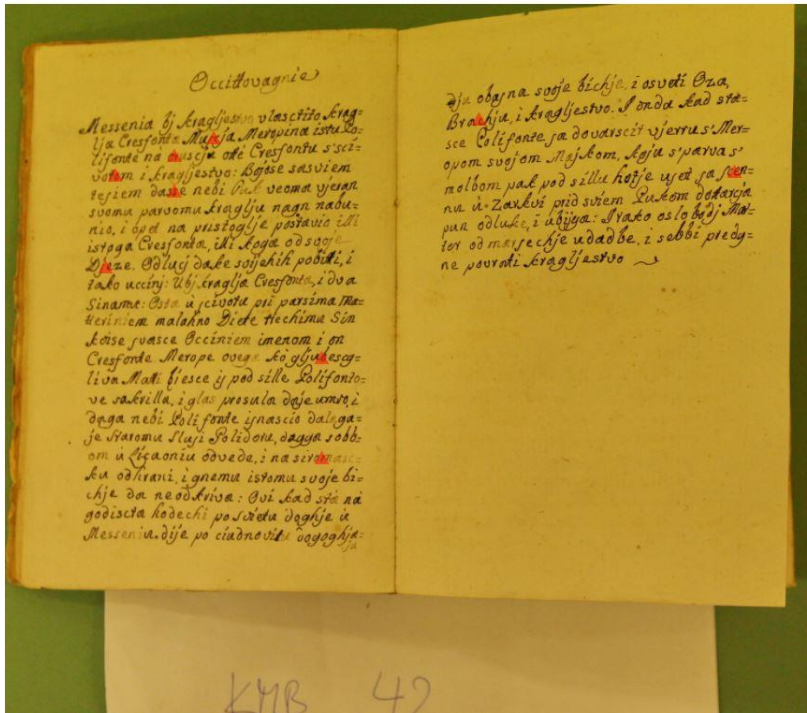 Occittovagnie
Messenia bj kragljestvo vlasctito krag=
lja Cresfonta Muxja Meropina istu Po=
lifonte na druscju otte Cresfontu s'sci=
votom i kragljestvo: Bojose sasviem
tesiem dasse nebi Puk veoma vjeran
svomu parvomu kraglju nagn nabu=
nio, i opet na pristoglje postavio illi
istoga Cresfonta, illi koga od svoje
Djeze. Odlucj dake svijekih pobitti, i
tako uccinj: Ubj kraglja Cresfonta, i dva
Sinama: Osta u scivotu pri parsima Ma=
tteriniem malahno Diete ttechimu Sin
koise svasce Occiniem imenom i on
Cresfonte. Merope ovega ko gljubescg=
liva Matti biesce ij pod sille Polifonto=
ve sakrilla, i glas prosula daje umro, i
daga nebi Polifonte isnascio dalega=
je staromu Sluji Polidoru, dagga sobb=
om u Licaoniu odvede, i na siromasc=
ku odhrani, i gnemu istomu svoje bi=
chje da neodkriva: Ovi kad sta na
godiscta hodechi po svietu doghje u
Messeniu. dije po ciudnovitu dogoghja=
ja
dju obazna svoje bichje, i osveti Oza,
Brachju, i kragljestvo. I onda kad sta=
sce Polifonte sa dovarscit vjerru s'Mer=
opom svojom Majkom, koju s'parva s'
molbom pak pod sillu hotje uset sa scen=
nu u Zarkvi prid sviem Pukom dottarcja
pun odluke, i ubijga: I tako oslobodj Mat=
ter od marsechje udadbe, i sebbi predg=
ne povratti kragljestvo
KMB 42